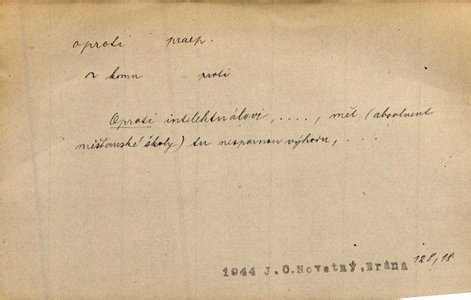 oproti praep.
~ komu = proti
Oproti intelektuálovi, . . . . , měl (absolvent
měšťanské školy) tu nespornou výhodu, .
1944 J.O.Novotný, Brána 128,18